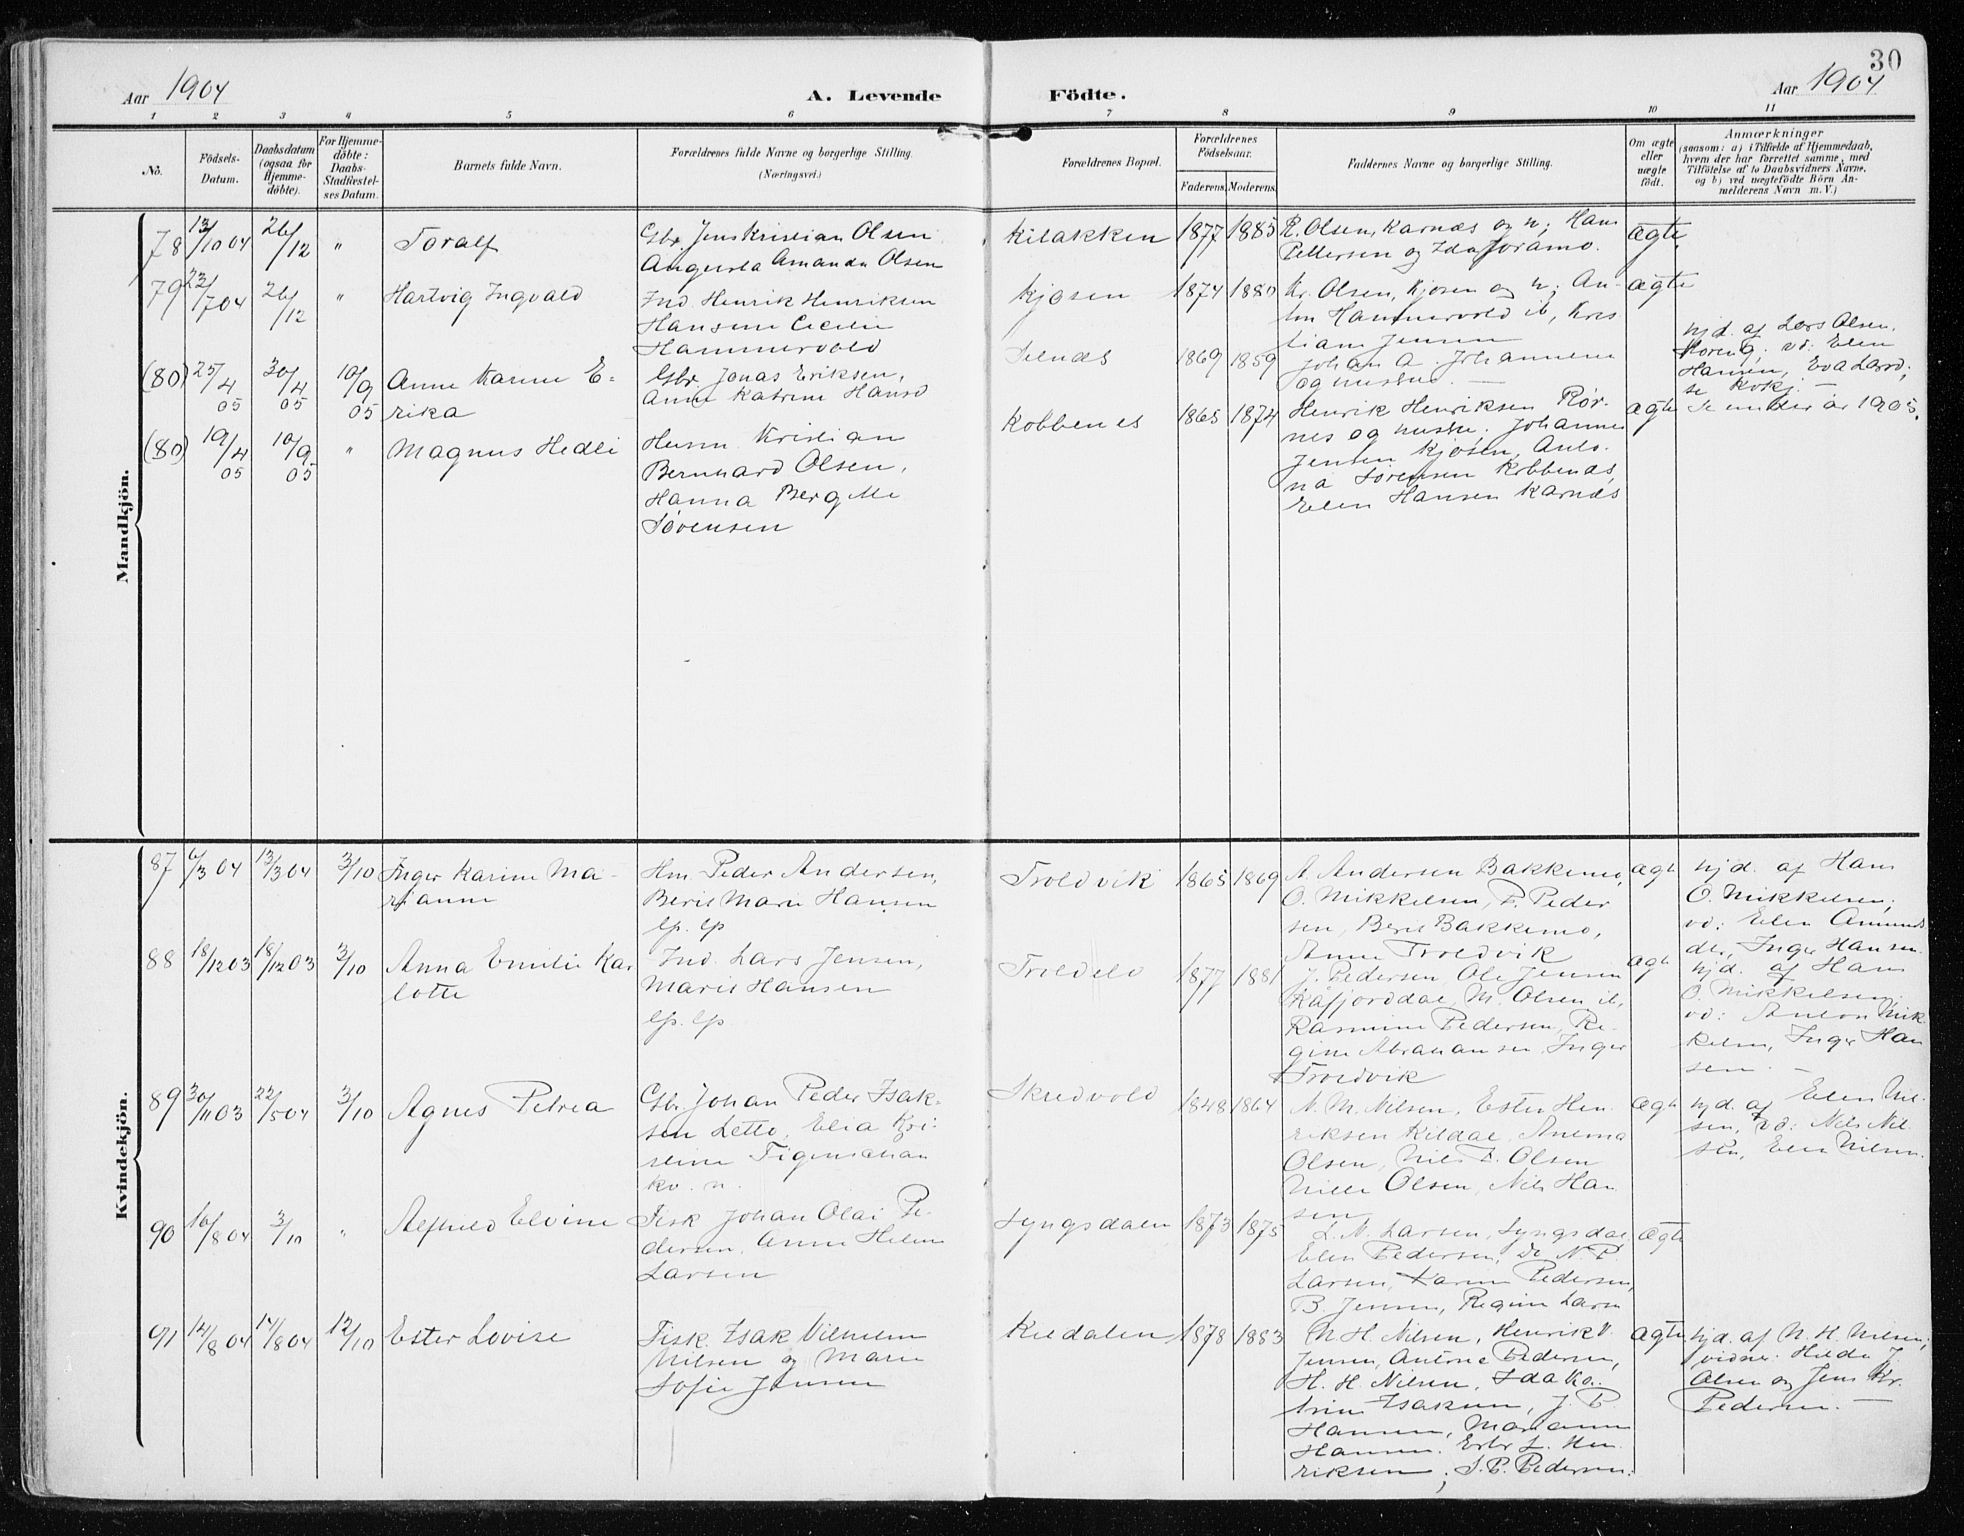 30
Aar 1904
A. Levende
Födte.
Aar 1904
1 2 3 4 5 6 7 8 9 10 11
No.
Födsels-
Datum.
Daabsdatum
(ogsaa for
Hjemme-
döbte).
For Hjemme-
döbte:
Daabs-
Stadfæstel-
ses Datum.
Barnets fulde Navn.
Forældrenes fulde Navne og borgerlige Stilling.
(Næringsvei.)
Forældrenes Bopæl.
Forældrenes
Födselsaar.
Faderens. Moderens.
Faddernes Navne og borgerlige Stilling.
Om ægte
eller
uægte
födt.
Anmærkninger
(saasom: a) i Tilfælde af Hjemmedaab,
hvem der har forrettet samme, med
Tilföielse af to Daabsvidners Navne,
og b) ved uægtefödte Börn An-
melderens Navn m. V.)
Mandkjön.
78 13/10 04 26/12 " Toralf
Gbr. Jens Kristian Olsen
Augusta Amanda Olsen
Kilakken 1877 1885
R. Olsen, Karnæs og h; Hans
Pettersen og Ida Joramo.
ægte
79 23/7 04 26/12 " Hartvig Ingvald
Ind. Henrik Henriksen
Hansine Cecilie
Hammervold
Kjosen 1874 1880
Kr. Olsen, Kjosen og h; An-
ton Hammervold ib, Kris
tiane Jensen
ægte
(80) 25/4 05 30/4 05 10/9 05 Anne Karine E-
rika
Gbr. Jonas Eriksen,
Anne Katrine Hansd
1869 1859
Johan A. Johannesen
og hustru. —
hjd. af Lars Olsen,
vd: Elen
Hansen, Eva Larsd;
Se under år 1905.
(80) 19/4 05 10/9 05 " Magnus Hedli
Husm Kristian
Bernhard Olsen,
Hanna Bergitte
Sørensen
Kobbenes 1865 1874
Henrik Henriksen Rör-
nes og hustru. Johannes
Jensen Kjosen, Anto-
na Sørensen Kobbenæs,
Elen Hansen Karnæs
ægte
Kvindekjön.
87 6/3 04 13/3 04 3/10 Inger Karine Ma-
rianne
Hm. Peder Andersen,
Berit Marie Hansen
lp. lp
Troldvik 1865 1869
A Andersen Bakkemo,
O. Mikkelsen, P. Peder
sen, Berit Bakkemo,
Anne Troldvik
ægt
hjd. af Hans
O. Mikkelsen;
vd: Elen Amunds
dtr, Inger Hansen.
88 18/12 03 18/12 03 3/10 Anna Emilie Kar
lotte
Ind. Lars Jensen,
Marit Hansen
lp. lp.
Troldelv 1877 1881
J. Pedersen, Ole Jensen
Kåfjorddal, M. Olsen ib,
Rasmine Pedersen, Re-
gine Abrahamsen, Inger
Troldvik
ægt
hjd. af Hans
O. Mikkelsen,
vd: Anton Mik
kelsen, Inger Han
sen. —
89 30/11 03 22/5 04 3/10 Agnes Petrea
Gbr. Johan Peder Isak-
sen Letto, Elia Kri-
stine Figenschau
kv. n.
Skredvold 1848 1864
N. M. Nilsen, Ester Hen
riksen Kildal, Antona
Olsen, Nils P. Olsen
Nille Olsen, Nils Han
sen
ægt
hjd. af Elen Nil-
sen, vd: Nils Nil-
sen, Elen Nilsen.
90 16/8 04 3/10 " Alfhild Elvine
Fisk Johan Olai Pe-
dersen, Anne Helene
Larsen
Lyngsdalen 1873 1875
L. N. Larsen, Lyngsdal,
Elen Pedersen, Do N. P.
Larsen, Karin Pedersen,
B. Jensen, Regine Larsen
ægte
91 14/8 04 14/8 04 12/10 Ester Lovise
Fisk. Isak Vilhelm
Nilsen og Marie
Sofie Jensen
Kildalen 1878 1883
N H. Nilsen, Henrik V.
Jensen, Antone Pedersen,
H. H. Nilsen, Ida Ka-
trine Isaksen, J. P.
Hansen, Marianne
Hansen. L. Hen
riksen; S. P. Pedersen.
ægte
hjd. af N. H. Nilsen;
vidner: Hilda J.
Olsen og Jens Kr.
Pedersen. —